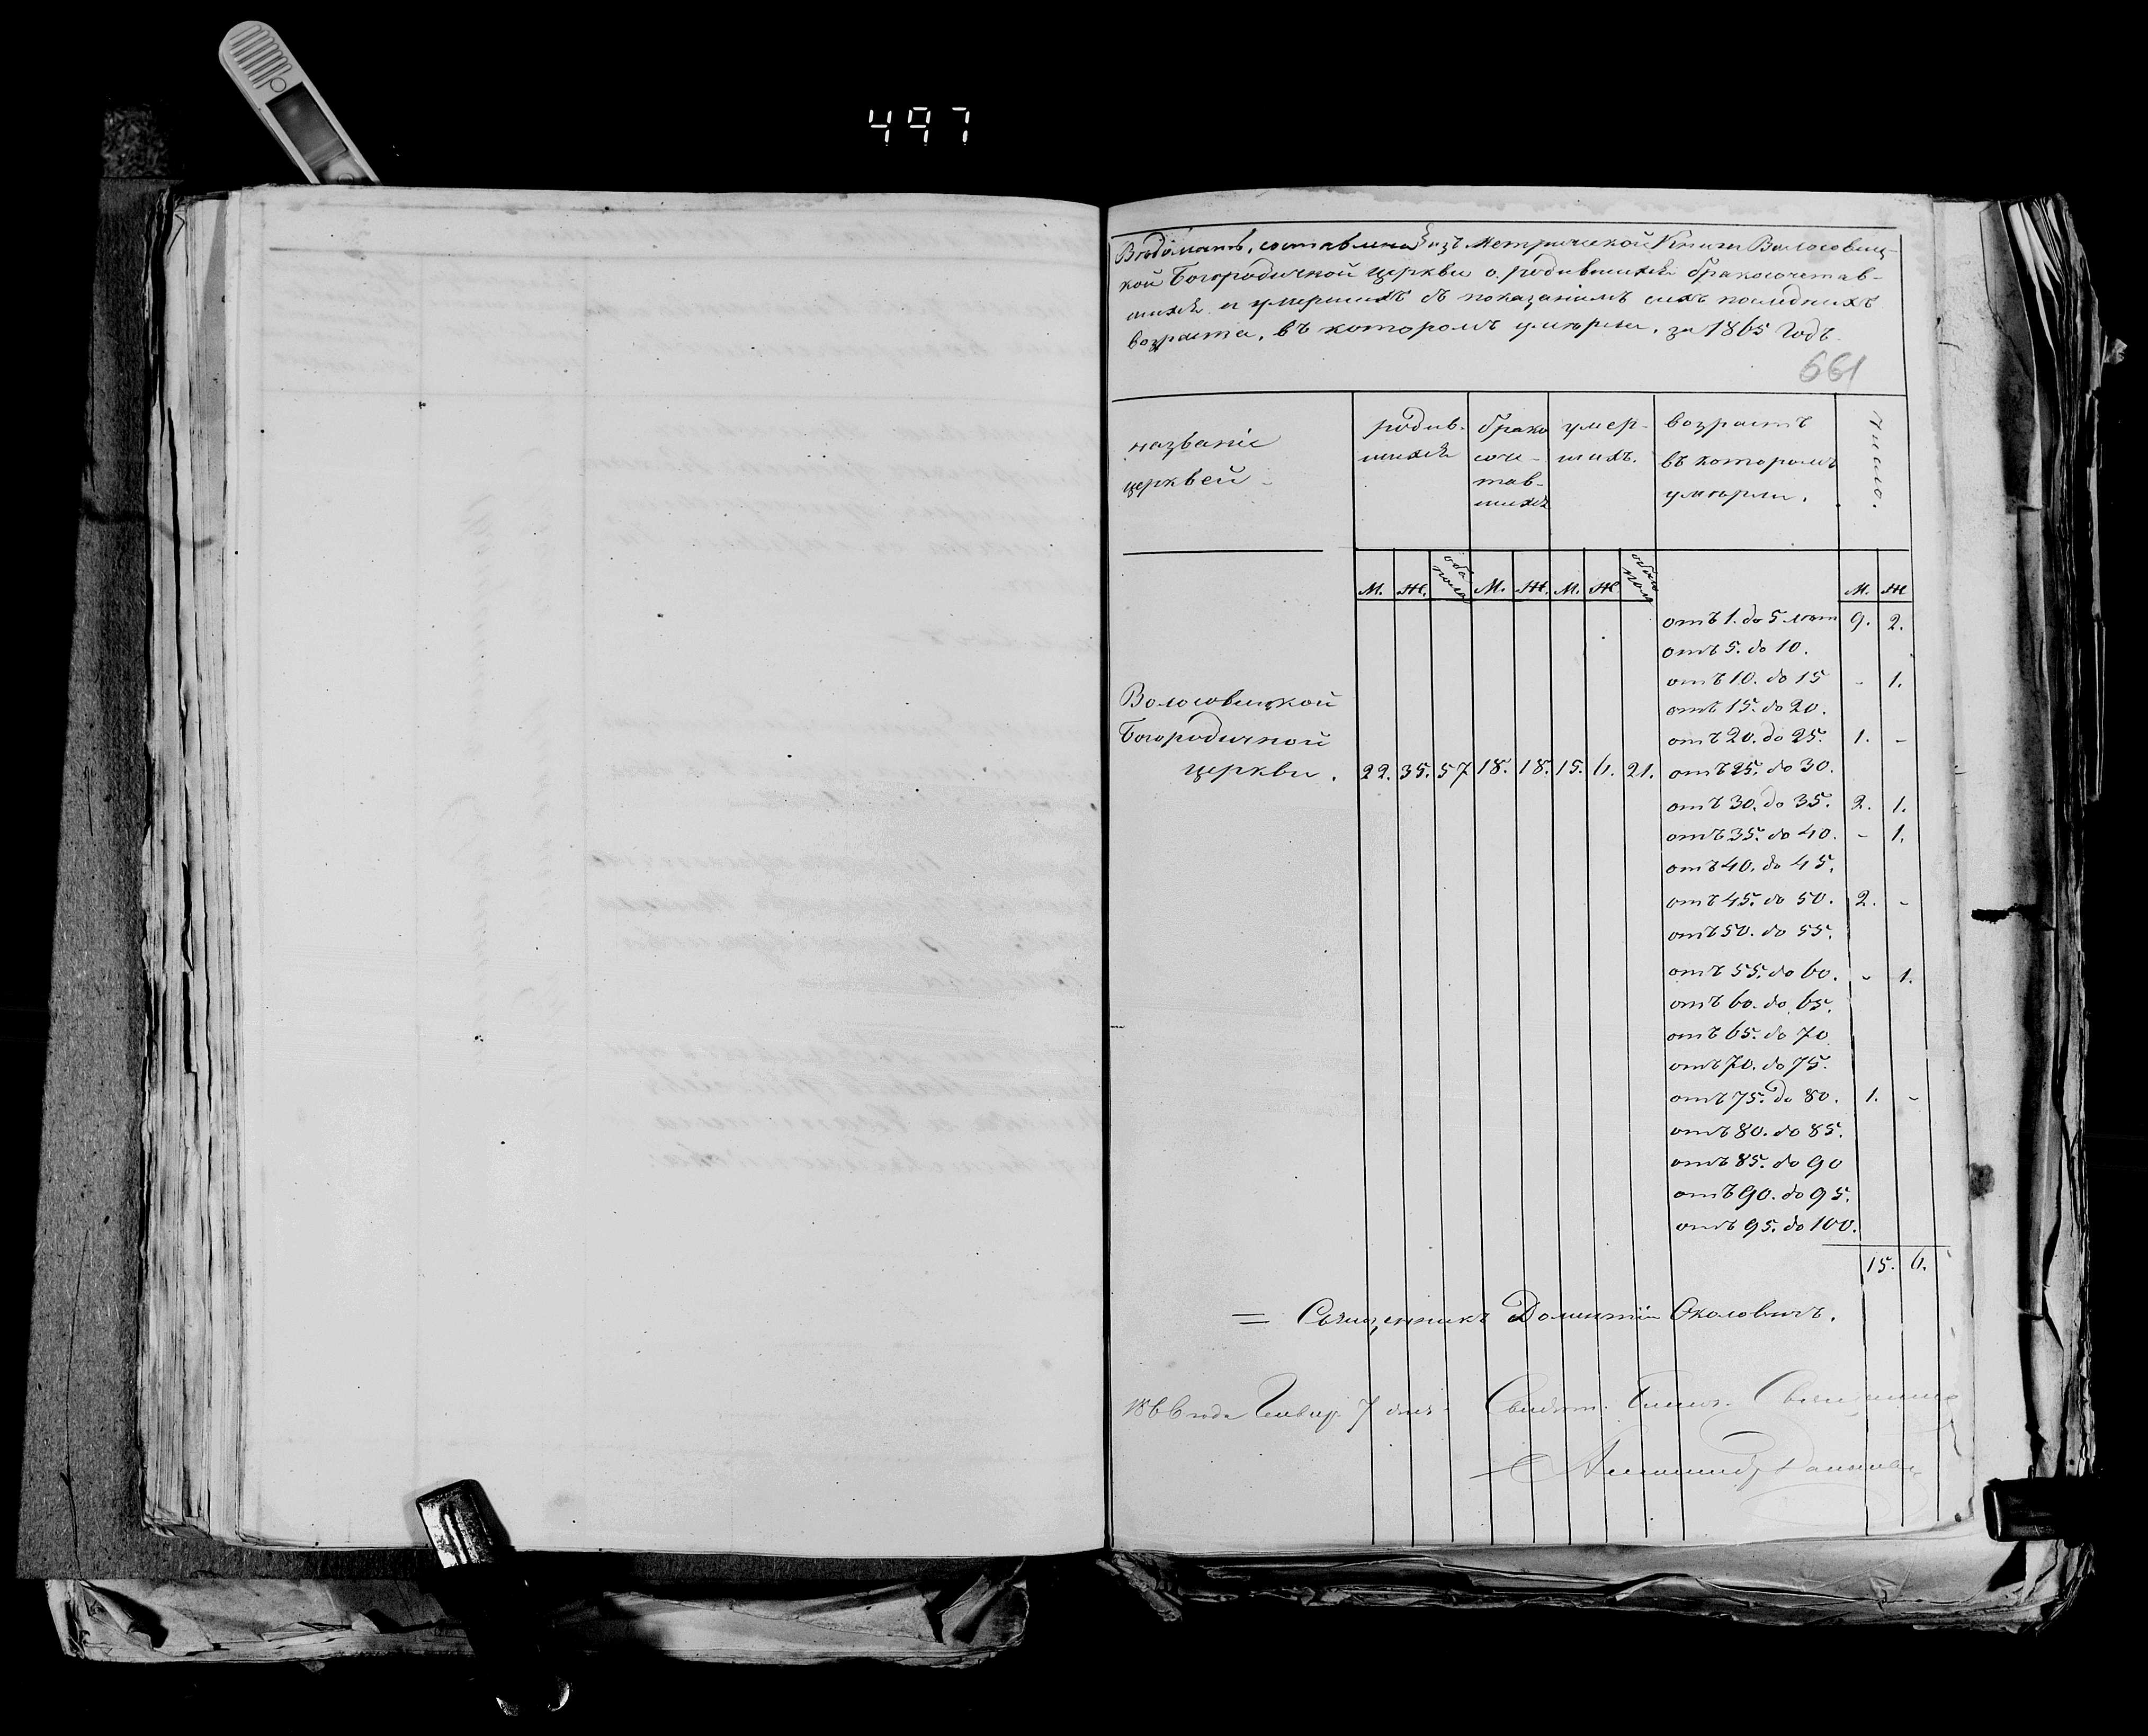 497
Вѣдомость, составлена изъ Метрической Книги Волосовиц-
кой Богородичной церкви о родившихся бракосочетав-
шихся и умершихъ съ показаніемъ сихъ последнихъ
возраста, въ которомъ умѣрли, за 1865 Годъ.
661
названіе церквей. родив- шихся брако соче- тав- шихся умер- шихъ. возрастъ въ которомъ умѣрли. Число.
М. Ж. оба пола М. Ж. М. Ж. обоего пола М. Ж
отъ 1. до 5 лѣт 9. 2.
отъ 5. до 10.
отъ 10. до 15 - 1.
отъ 15. до 20.
отъ 20. до 25. 1. -
Волосовицкой
Богородичной
церкви. 22. 35. 57 18. 18. 15. 6. 21. отъ 25. до 30.
отъ 30. до 35. 2. 1.
отъ 35. до 40. - 1.
отъ 40. до 45.
отъ 45. до 50. 2. -
отъ 50. до 55.
отъ 55. до 60. - 1.
отъ 60. до 65.
отъ 65. до 70
отъ 70. до 75.
отъ 75. до 80. 1. -
отъ 80. до 85.
отъ 85. до 90
отъ 90. до 95.
отъ 95. до 100.
15. 6.
= Священникъ Доминтій Околовичъ.
1866 года Январ. 7 дня